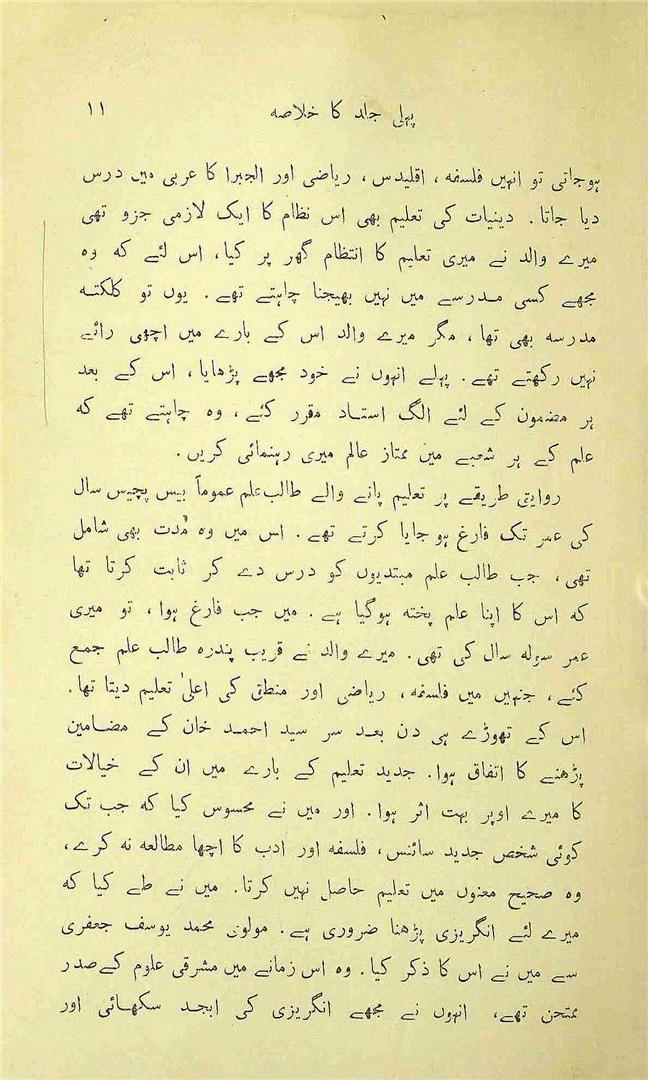 پہلی جلد کا خلاصہ ۱۱
ہوجاتی تو انہیں فلسفہ ، اقلیدس ، ریاضی اور الجبرا کا عربی میں درس
دیا جاتا . دینیات کی تعلیم بھی اس نظام کا ایک لازمی جزو تھی
میرے والد نے میری تعلیم کا انتظام گھر پر کیا، اس لئے کہ وہ
مجھے کسی مدرسے میں نہیں بھیجنا چاہتے تھے . یوں تو کلکتہ
مدرسہ بھی تھا ، مگر میرے والد اس کے بارے میں اچھی رائے
نہیں رکھتے تھے . پہلے انہوں نے خود مجھے پڑھایا ، اس کے بعد
ہر مضمون کے لئے الگ استاد مقرر کئے ، وہ چاہتے تھے کہ
علم کے ہر شعبے میں ممتاز عالم میری رہنمائی کریں .
روایتی طریقے پر تعلیم پانے والے طالب علم عموماً بیس پچیس سال
کی عمر تک فارغ ہو جایا کرتے تھے . اس میں وہ مُدت بھی شامل
تھی ، جب طالب علم مبتدیوں کو درس دے کر ثابت کرتا تھا
کہ اس کا اپنا علم پختہ ہوگیا ہے . میں جب فارغ ہوا ، تو میری
عمر سولہ سال کی تھی . میرے والد نے قریب پندرہ طالب علم جمع
کئے ، جنہیں میں فلسفہ ، ریاضی اور منطق کی اعلیٰ تعلیم دیتا تھا .
اس کے تھوڑے ہی دن بعد سر سید احمد خان کے مضامین
پڑھنے کا اتفاق ہوا . جدید تعلیم کے بارے میں ان کے خیالات
کا میرے اوپر بہت اثر ہوا . اور میں نے محسوس کیا کہ جب تک
کوئی شخص جدید سائنس ، فلسفہ اور ادب کا اچھا مطالعہ نہ کرے ،
وہ صحیح معنوں میں تعلیم حاصل نہیں کرتا . میں نے طے کیا کہ
میرے لئے انگریزی پڑھنا ضروری ہے . مولوی محمد یوسف جعفری
سے میں نے اس کا ذکر کیا . وہ اس زمانے میں مشرقی علوم کے صدر
ممتحن تھے ، انہوں نے مجھے انگریزی کی ابجد سکھائی اور